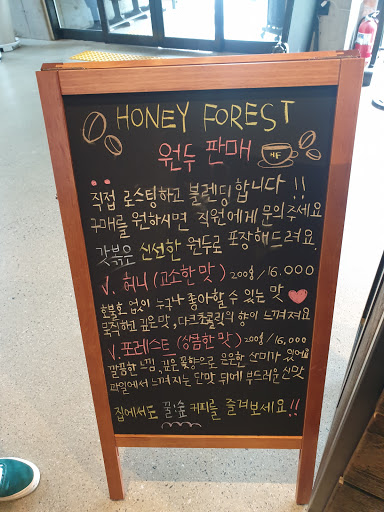 HONEY FOREST
원두 판매
HF
직접 로스팅하고 블렌딩합니다 !!
구매를 원하시면 직원에게 문의주세요
갓볶은 신선한 원두로 포장해드려요.
√. 허니 (고소한 맛) 200g / 16.000
호불호 없이 누구나 좋아할 수 있는 맛
묵직하고 깊은 맛, 다크초콜릿의 향이 느껴져요
√. 포레스트 (상큼한 맛) 200g / 16,000
깔끔한 느낌. 깊은 꽃향으로 은은한 산미가 있어요
과일에서 느껴지는 단맛 뒤에 부드러운 신맛
집에서도 꿀.숲 커피를 즐겨보세요 !!